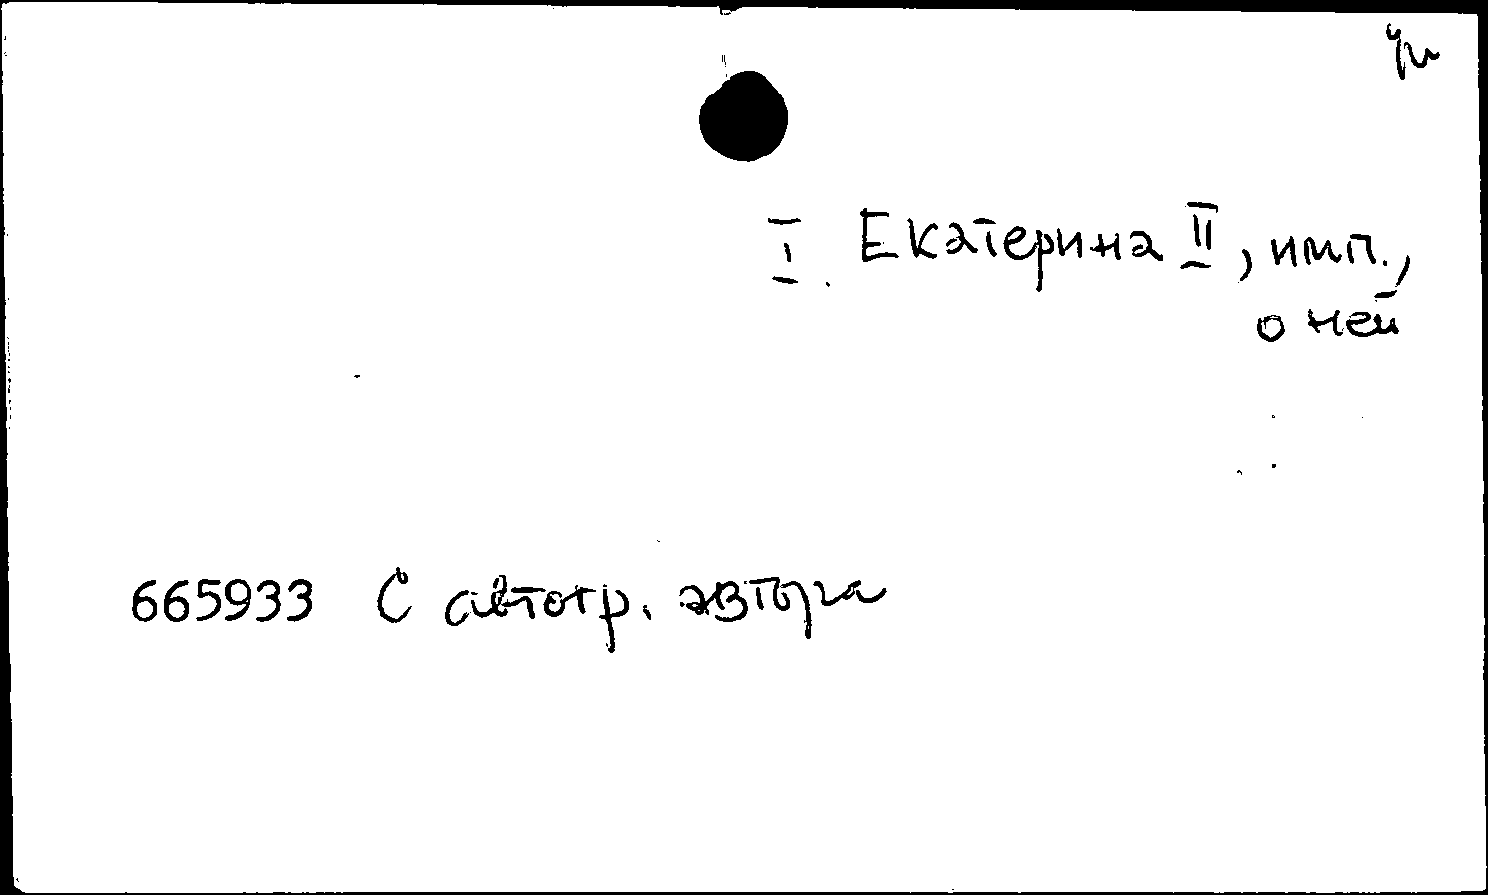 I. Екатерина II, имп.,
о ней
665933 С автогр. автора